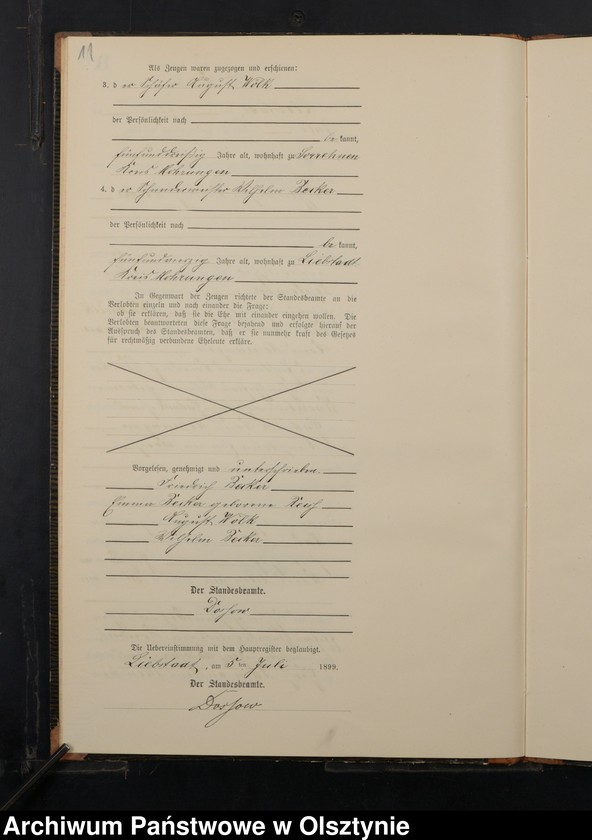 11
Als Zeugen waren zugezogen und erschienen:
3. der Schäfer August Wölk
der Persönlichkeit nach
be kannt,
fünfunddreißig Jahre alt, wohnhaft zu
Kreis Mohrungen
4. der Schneidermeister Wilhelm Becker
der Persönlichkeit nach
be kannt,
Jahre alt, wohnhaft zu Liebstadt
Kreis Mohrungen
In Gegenwart der Zeugen richtete der Standesbeamte an die
Verlobten einzeln und nach einander die Frage:
ob sie erklären, daß sie die Ehe mit einander eingehen wollen. Die
Verlobten beantworteten diese Frage bejahend und erfolgte hierauf der
Ausspruch des Standesbeamten, daß er sie nunmehr kraft des Gesetzes
für rechtmäßig verbundene Eheleute erkläre.
Vorgelesen, genehmigt und unterschrieben.
Friedrich Becker
Emma Becker geborene
August Wölk
Wilhelm Becker
Der Standesbeamte.
Dossow
Die Uebereinstimmung mit dem Hauptregister beglaubigt.
Liebstadt, am 5ten Juli 1899.
Der Standesbeamte.
Dossow
Archiwum Państwowe w Olsztynie